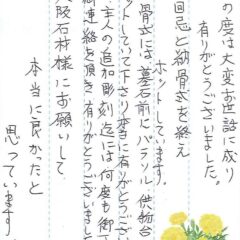 の度は大変お世話に成り
有りがとうございました。
回忌と納骨式を終え
ホットしています。
骨式には墓石前にパラソル、供物台
ットしていて下さり本当に有りがとうござい
主人の追加彫刻迄には何度も御
御連絡を頂き有りがとうございました
大阪石材様にお願いして
本当に良かったと
思っています